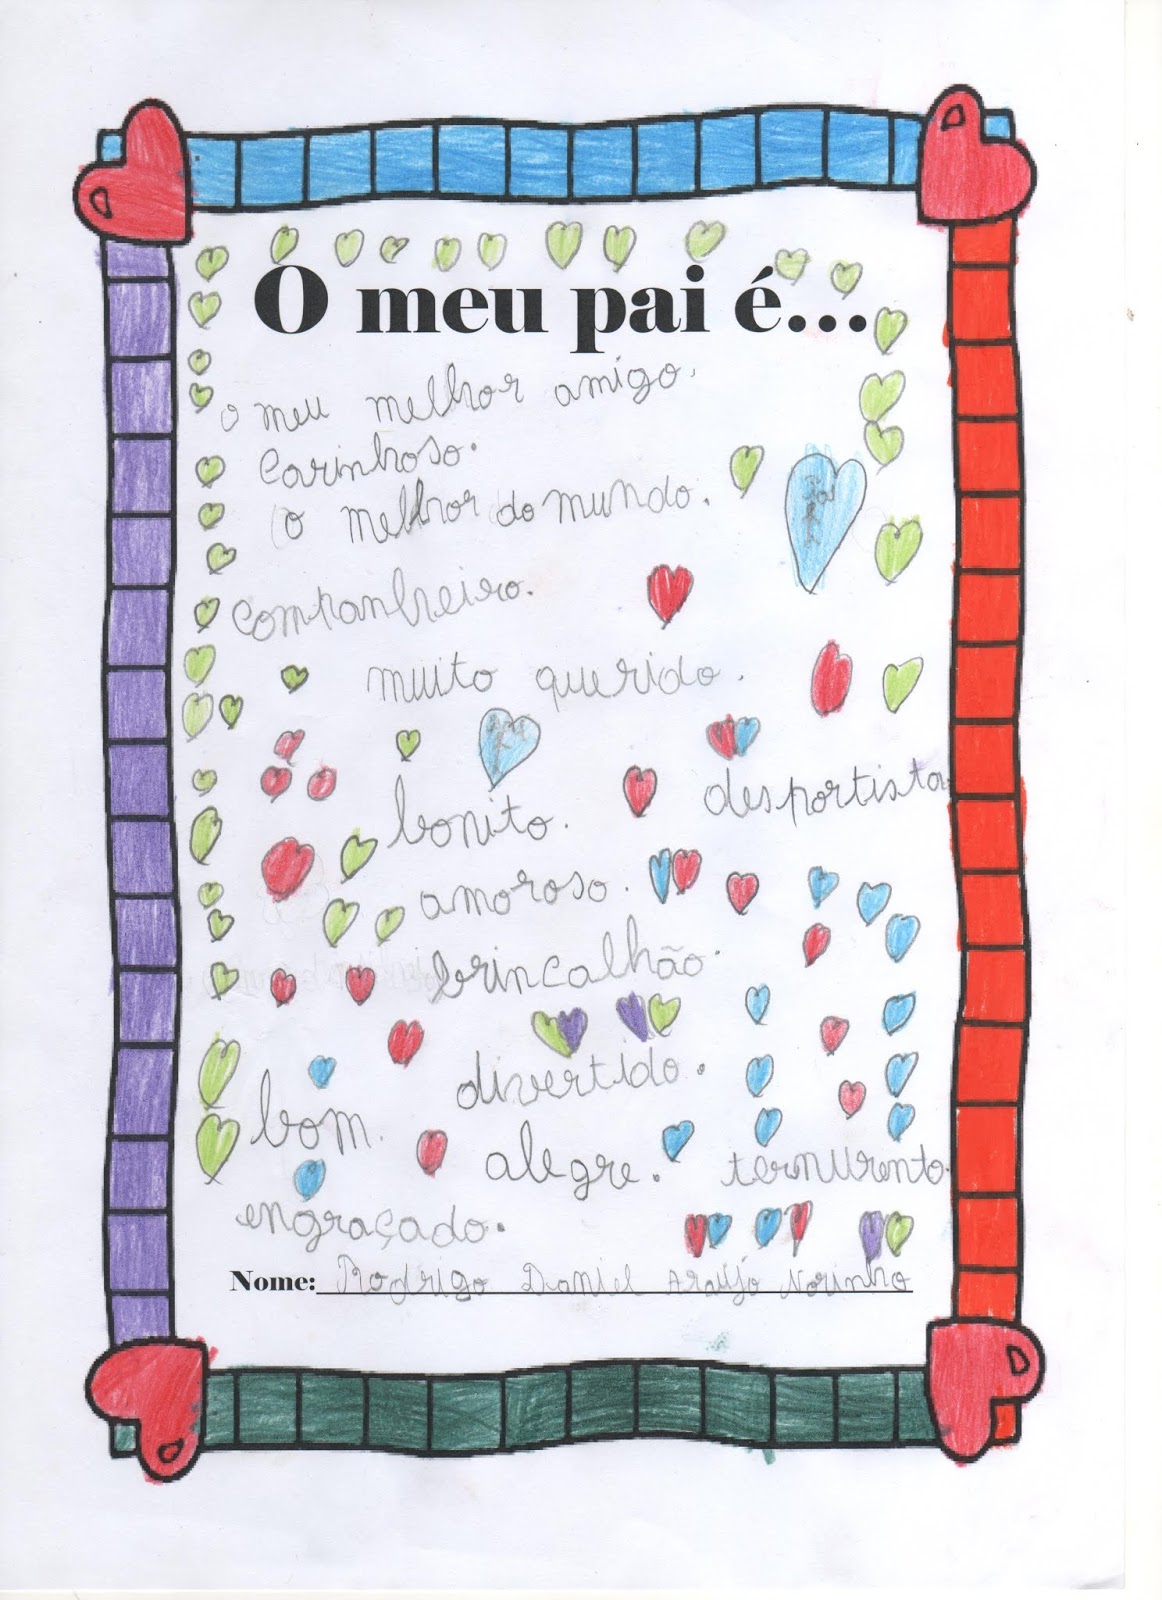 O meu pai é...
o meu melhor amigo.
Carinhoso.
o melhor do mundo.
companheiro.
muito querido.
desportista.
bonito.
amoroso.
brincalhão.
divertido.
bom.
alegre.
ternurento.
engraçado.
Nome: Rodrigo Daniel Araújo Norinho